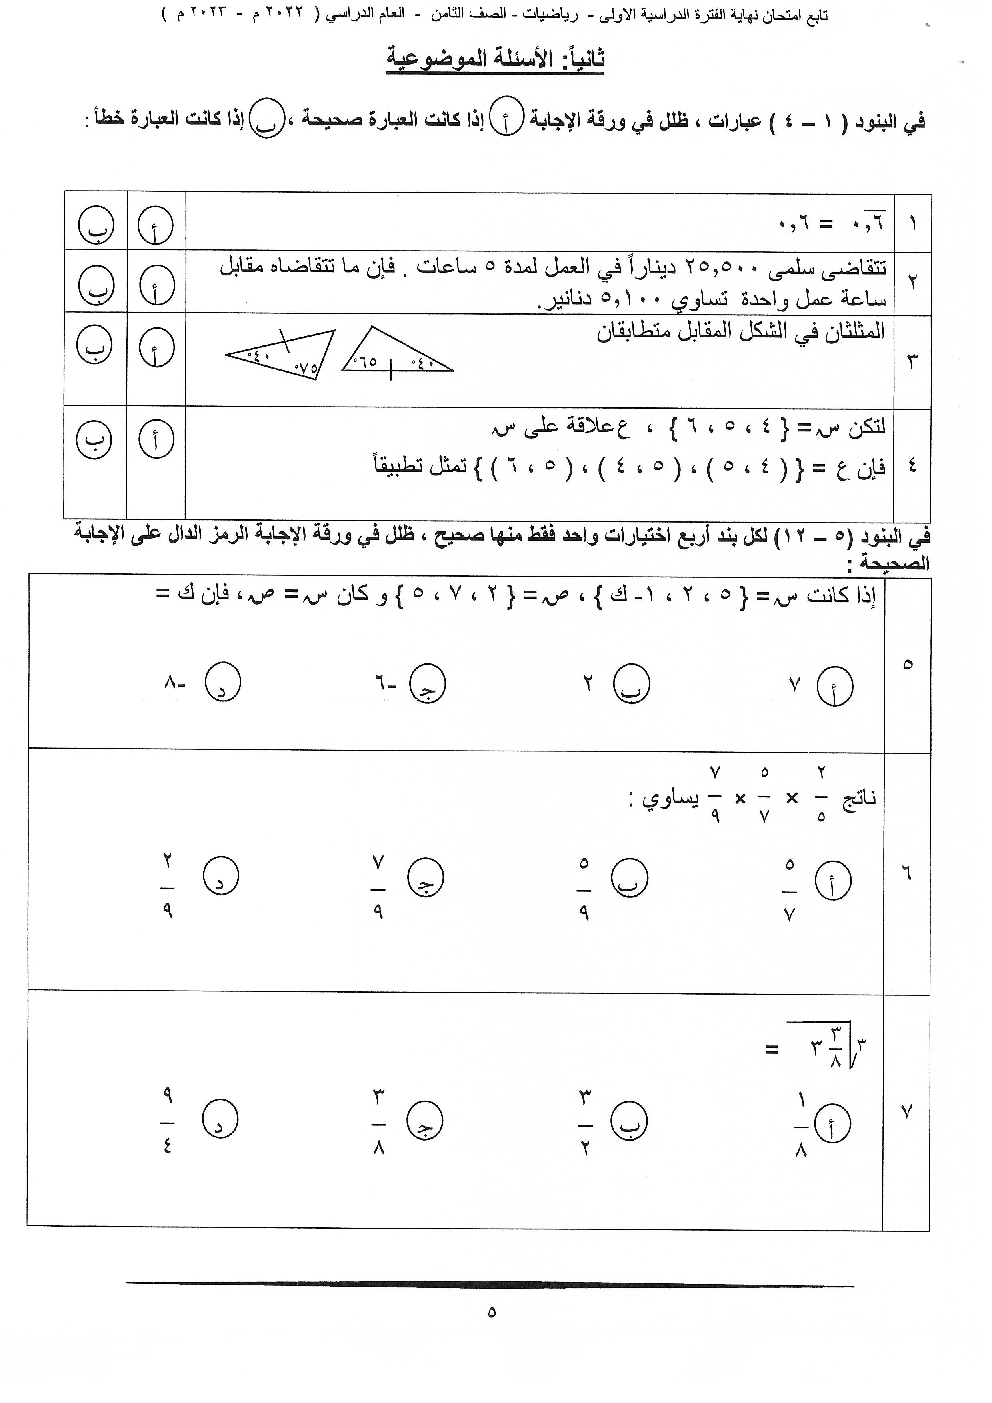 تابع امتحان نهاية الفترة الدراسية الاولى - رياضيات - الصف الثامن - العام الدراسي ( ٢٠٢٢ م - ٢٠٢٣ م )
ثانياً: الأسئلة الموضوعية
في البنود ( ١ - ٤ ) عبارات ، ظلل في ورقة الإجابة أ إذا كانت العبارة صحيحة ، ب إذا كانت العبارة خطأ :
١ ٠,٦̅ = ٠,٦ أ ب
٢ تتقاضى سلمى ٢٥,٥٠٠ ديناراً في العمل لمدة ٥ ساعات . فإن ما تتقاضاه مقابل
ساعة عمل واحدة تساوي ٥,١٠٠ دنانير. أ ب
٣ المثلثان في الشكل المقابل متطابقان أ ب
٤٠° ٦٥° ٧٥° ٤٠°
٤ لتكن س = { ٤ ، ٥ ، ٦ } ، ع علاقة على س أ ب
فإن ع = { ( ٤ ، ٥ ) ، ( ٥ ، ٤ ) ، ( ٥ ، ٦ ) } تمثل تطبيقاً
في البنود (٥ - ١٢) لكل بند أربع اختيارات واحد فقط منها صحيح ، ظلل في ورقة الإجابة الرمز الدال على الإجابة
الصحيحة :
٥ إذا كانت س = { ٥ ، ٢ ، ١- ك } ، ص = { ٢ ، ٧ ، ٥ } و كان س = ص ، فإن ك =
أ ٧ ب ٢ ج -٦ د -٨
٦ ناتج ٢/٥ × ٥/٧ × ٧/٩ يساوي :
أ ٥/٧ ب ٥/٩ ج ٧/٩ د ٢/٩
٧ ∛(٣ ٣/٨) =
أ ١/٨ ب ٣/٢ ج ٣/٨ د ٩/٤
٥